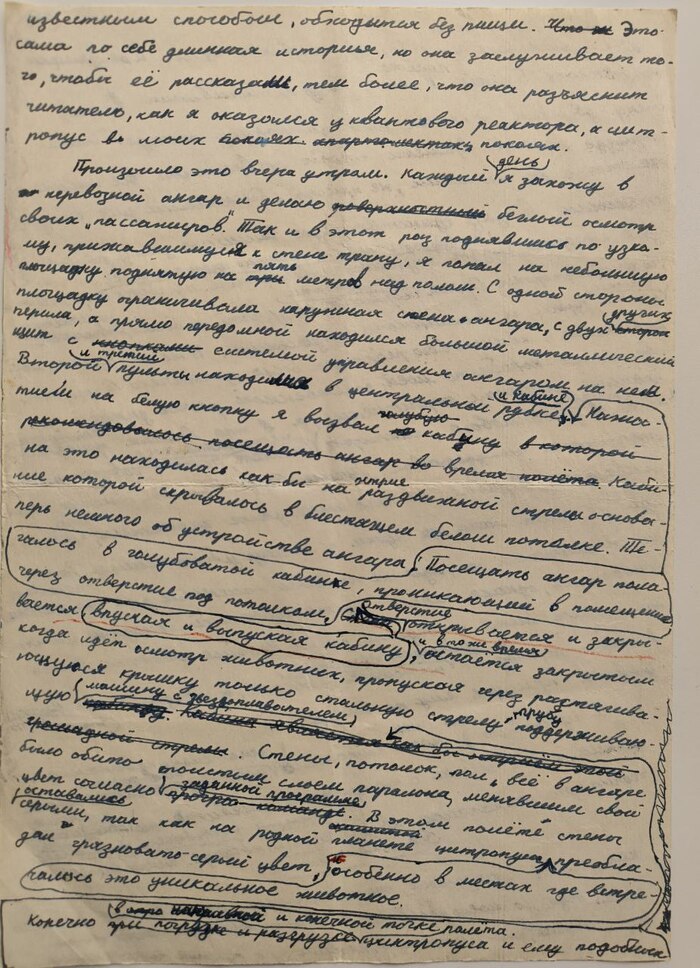 известным способом, обходится без пищи. Что ж Это
сама по себе длинная история, но она заслуживает то-
го, чтобы её рассказали, тем более, что она разъяснит
читателю, как я оказался у квантового реактора, а цит-
ропус в моих покоях апартаментах покоях.
день
Произошло это вчера утром. Каждый я захожу в
перевозной ангар и делаю поверхностный беглый осмотр
своих "пассажиров". Так и в этот раз поднявшись по узко-
му, прижавшимуся к стене трапу, я попал на небольшую
пять
площадку поднятую на три метров над полом. С одной стороны
площадку ограничивала наружная стена ангара, с двух сторон
других
перила, а прямо передомной находился большой металлический
щит с кнопками системой управления ангаром на нём.
и третий
Второй пульты находились в центральной рубке Нажа-
и кабине
голубую
тием на белую кнопку я вызвал кабину в которой
рекомендовалось посещать ангар во время полёта. Каби-
на это находилась как бы на раздвижной стрелы основа-
острие
ние которой скрывалось в блестящем белом потолке. Те-
перь немного об устройстве ангара. Посещать ангар пола-
галось в голубоватой кабинке, проникающий в помещение
через отверстие под потолком, открывается и закры-
отверстие
вается впуская и выпуская кабину, остаётся закрытым
и в тоже время
когда идёт осмотр животных, пропуская через растягива-
ющуюся крышку только стальную стрелу, поддерживаю-
щую кабинку. Кабина является как бы острием этой
машину с звездоплавателем,
громадной стрелы. Стены, потолок, пол, всё в ангаре
было обито толстым слоем паралона, менявшим свой
цвет согласно заданной программе. В этом полёте стены
оставались
серыми, так как на родной планете цитропуса преобла-
дал грязновато-серый цвет, особенно в местах где встре-
чалось это уникальное животное.
и конечной точке полёта.
Конечно при погрузке и разгрузке цитропуса и ему подобных